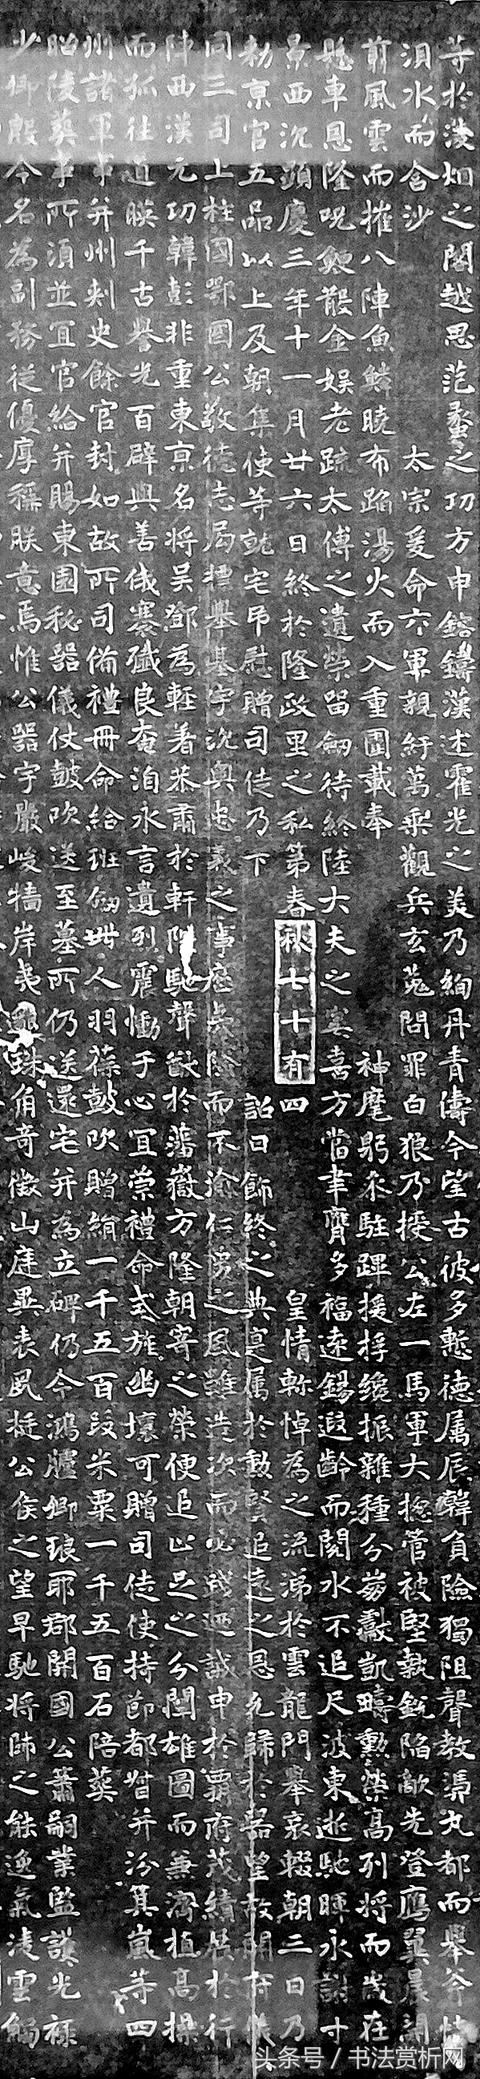 等於凌烟之閣越思范蠡之功方申鎔鑄漢述霍光之美乃絢丹青儔今望古彼多慙德属辰韓負險獨阻聲教憑丸都而舉斧恃
浿水而含沙 太宗爰命六軍親紆萬乘觀兵玄菟問罪白狼乃授公左一馬軍大揔管被堅執銳陷敵先登鷹翼晨開
前風雲而摧八陣魚鱗曉布蹈湯火而入重圍載奉 神麾躬叅駐蹕援桴纔振雜種分崩獻凱疇勳榮高列將而歲在
懸車恩隆呪鯁散金娱老踈太傅之遺榮留劒待終陸大夫之宴喜方當聿膺多福遠錫遐齡而閱水不追尺波東逝馳暉永謝寸
景西沉顯慶三年十一月廿六日終於隆政里之私第春秋七十有四 皇情軫悼為之流涕於雲龍門舉哀輟朝三日乃
勑京官五品以上及朝集使等就宅吊慰贈司徒乃下 詔曰飾終之典寔属於勳賢追遠之恩允歸於器望故開府儀
同三司上柱國鄂國公敬德志局標舉基宇沉奧忠義之事歷夷險而不渝仁勇之風雖造次而必踐廼誠申於霸府茂績展於行
陣西漢元功韓彭非重東京名將吳鄧為輕著恭肅於軒陛馳聲猷於藩嶽方隆朝寄之榮便追止足之分閫雄圖而兼濟植高操
而孤往道映千古譽光百辟與善俄褰殲良奄洎永言遺烈震慟于心宜崇禮命式旌幽壤可贈司徒使持節都督并汾箕嵐等四
州諸軍事并州刺史餘官封如故所司俻禮冊命給班劒卌人羽葆鼓吹贈絹一千五百段米粟一千五百石陪葬
昭陵葬事所湏並宜官給并賜東園秘器儀仗皷吹送至墓所仍送還宅并為立碑仍令鴻臚卿琅耶郡開國公蕭嗣業監護光禄
少卿殷令名為副務從優厚稱朕意焉惟公器宇嚴峻墻岸夷 珠角奇徵山庭異表夙挺公侯之望早馳將帥之能逸氣凌雲觸
头条号 / 书法赏析网